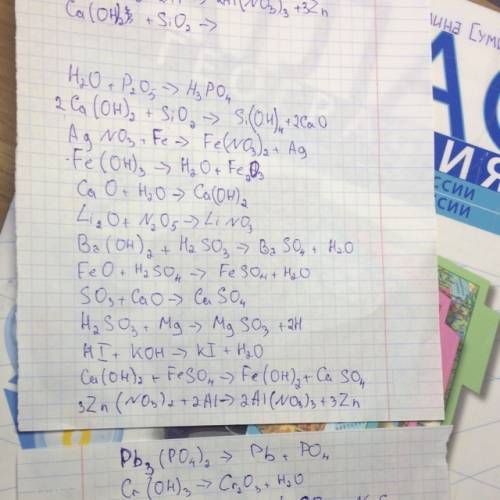 Al(NO₃)₃ + 3Zn
Ca(OH)₂ + SiO₂ →
H₂O + P₂O₅ → H₃PO₄
2Ca(OH)₂ + SiO₂ → Si(OH)₄ + 2CaO
AgNO₃ + Fe → Fe(NO₃)₂ + Ag
Fe(OH)₃ → H₂O + Fe₂O₃
CaO + H₂O → Ca(OH)₂
Li₂O + N₂O₅ → LiNO₃
Ba(OH)₂ + H₂SO₃ → BaSO₄ + H₂O
FeO + H₂SO₄ → FeSO₄ + H₂O
SO₃ + CaO → CaSO₄
H₂SO₃ + Mg → MgSO₃ + 2H
HI + KOH → KI + H₂O
Ca(OH)₂ + FeSO₄ → Fe(OH)₂ + CaSO₄
3Zn(NO₃)₂ + 2Al → 2Al(NO₃)₃ + 3Zn
Pb₃(PO₄)₂ → Pb + PO₄
Cr(OH)₃ → Cr₂O₃ + H₂O
лина Суми
АС
ИЯ
ССИИ
СИИ